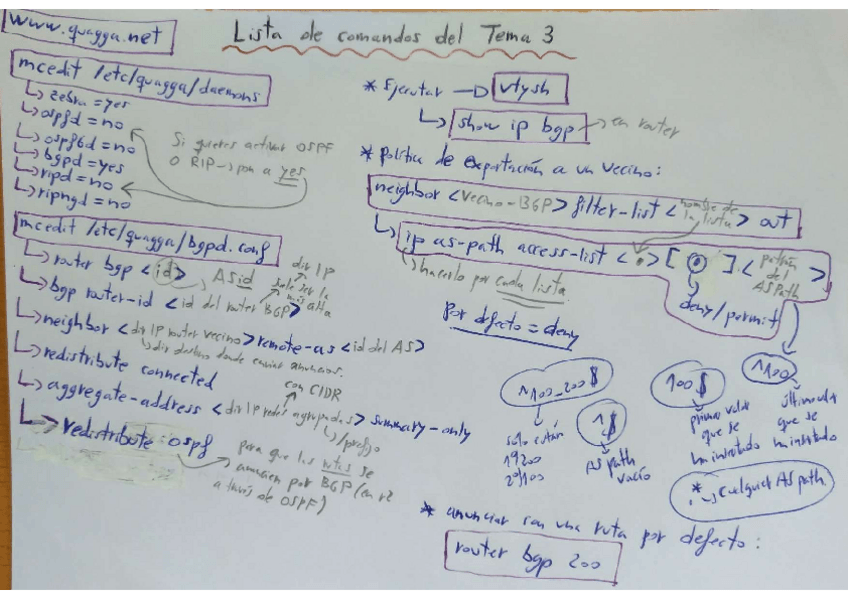 www.quagga.net
Lista de comandos del Tema 3
mcedit /etc/quagga/daemons
↳ zebra = yes
↳ ospfd = no
↳ ospf6d = no
↳ bgpd = yes
↳ ripd = no
↳ ripngd = no
Si quieres activar OSPF
o RIP → pon a yes
mcedit /etc/quagga/bgpd.conf
↳ router bgp <id>
AS id
↳ bgp router-id <id del router BGP>
dir IP
suele ser la
más alta
↳ neighbor <dir IP router vecino> remote-as <id del AS>
↳ dir destino donde enviar anuncios.
↳ redistribute connected
con CIDR
↳ aggregate-address <dir IP redes agrupadas> summary-only
↳ /prefijo
↳ redistribute ospf
para que las rutas se
anuncien por BGP (en r2
a través de OSPF)
* Ejecutar → vtysh
↳ show ip bgp → en router
* Política de exportación a un vecino:
neighbor <vecino-BGP> filter-list <nombre de la lista> out
↳ ip as-path access-list < • > [ ] <patrón del ASPath>
↳ hacerlo por cada lista.
deny/permit
Por defecto = deny
^100_200$
solo están
1º 200
2º 100
^$
AS path
vacío
100$
primer valor
que se
ha insertado
^100
último valor
que se
ha insertado
.* → cualquier AS path
* anunciar con una ruta por defecto:
router bgp 200